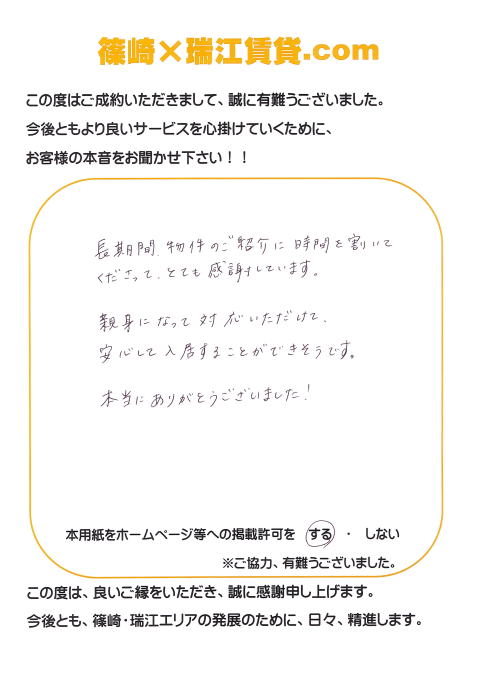 篠崎×瑞江賃貸.com
この度はご成約いただきまして、誠に有難うございました。
今後ともより良いサービスを心掛けていくために、
お客様の本音をお聞かせ下さい!!
長期間、物件のご紹介に時間を割いて
くださって、とても感謝しています。
親身になって対応いただけて、
安心して入居することができそうです。
本当にありがとうございました!
本用紙をホームページ等への掲載許可を する ・ しない
※ご協力、有難うございました。
この度は、良いご縁をいただき、誠に感謝申し上げます。
今後とも、篠崎・瑞江エリアの発展のために、日々、精進します。